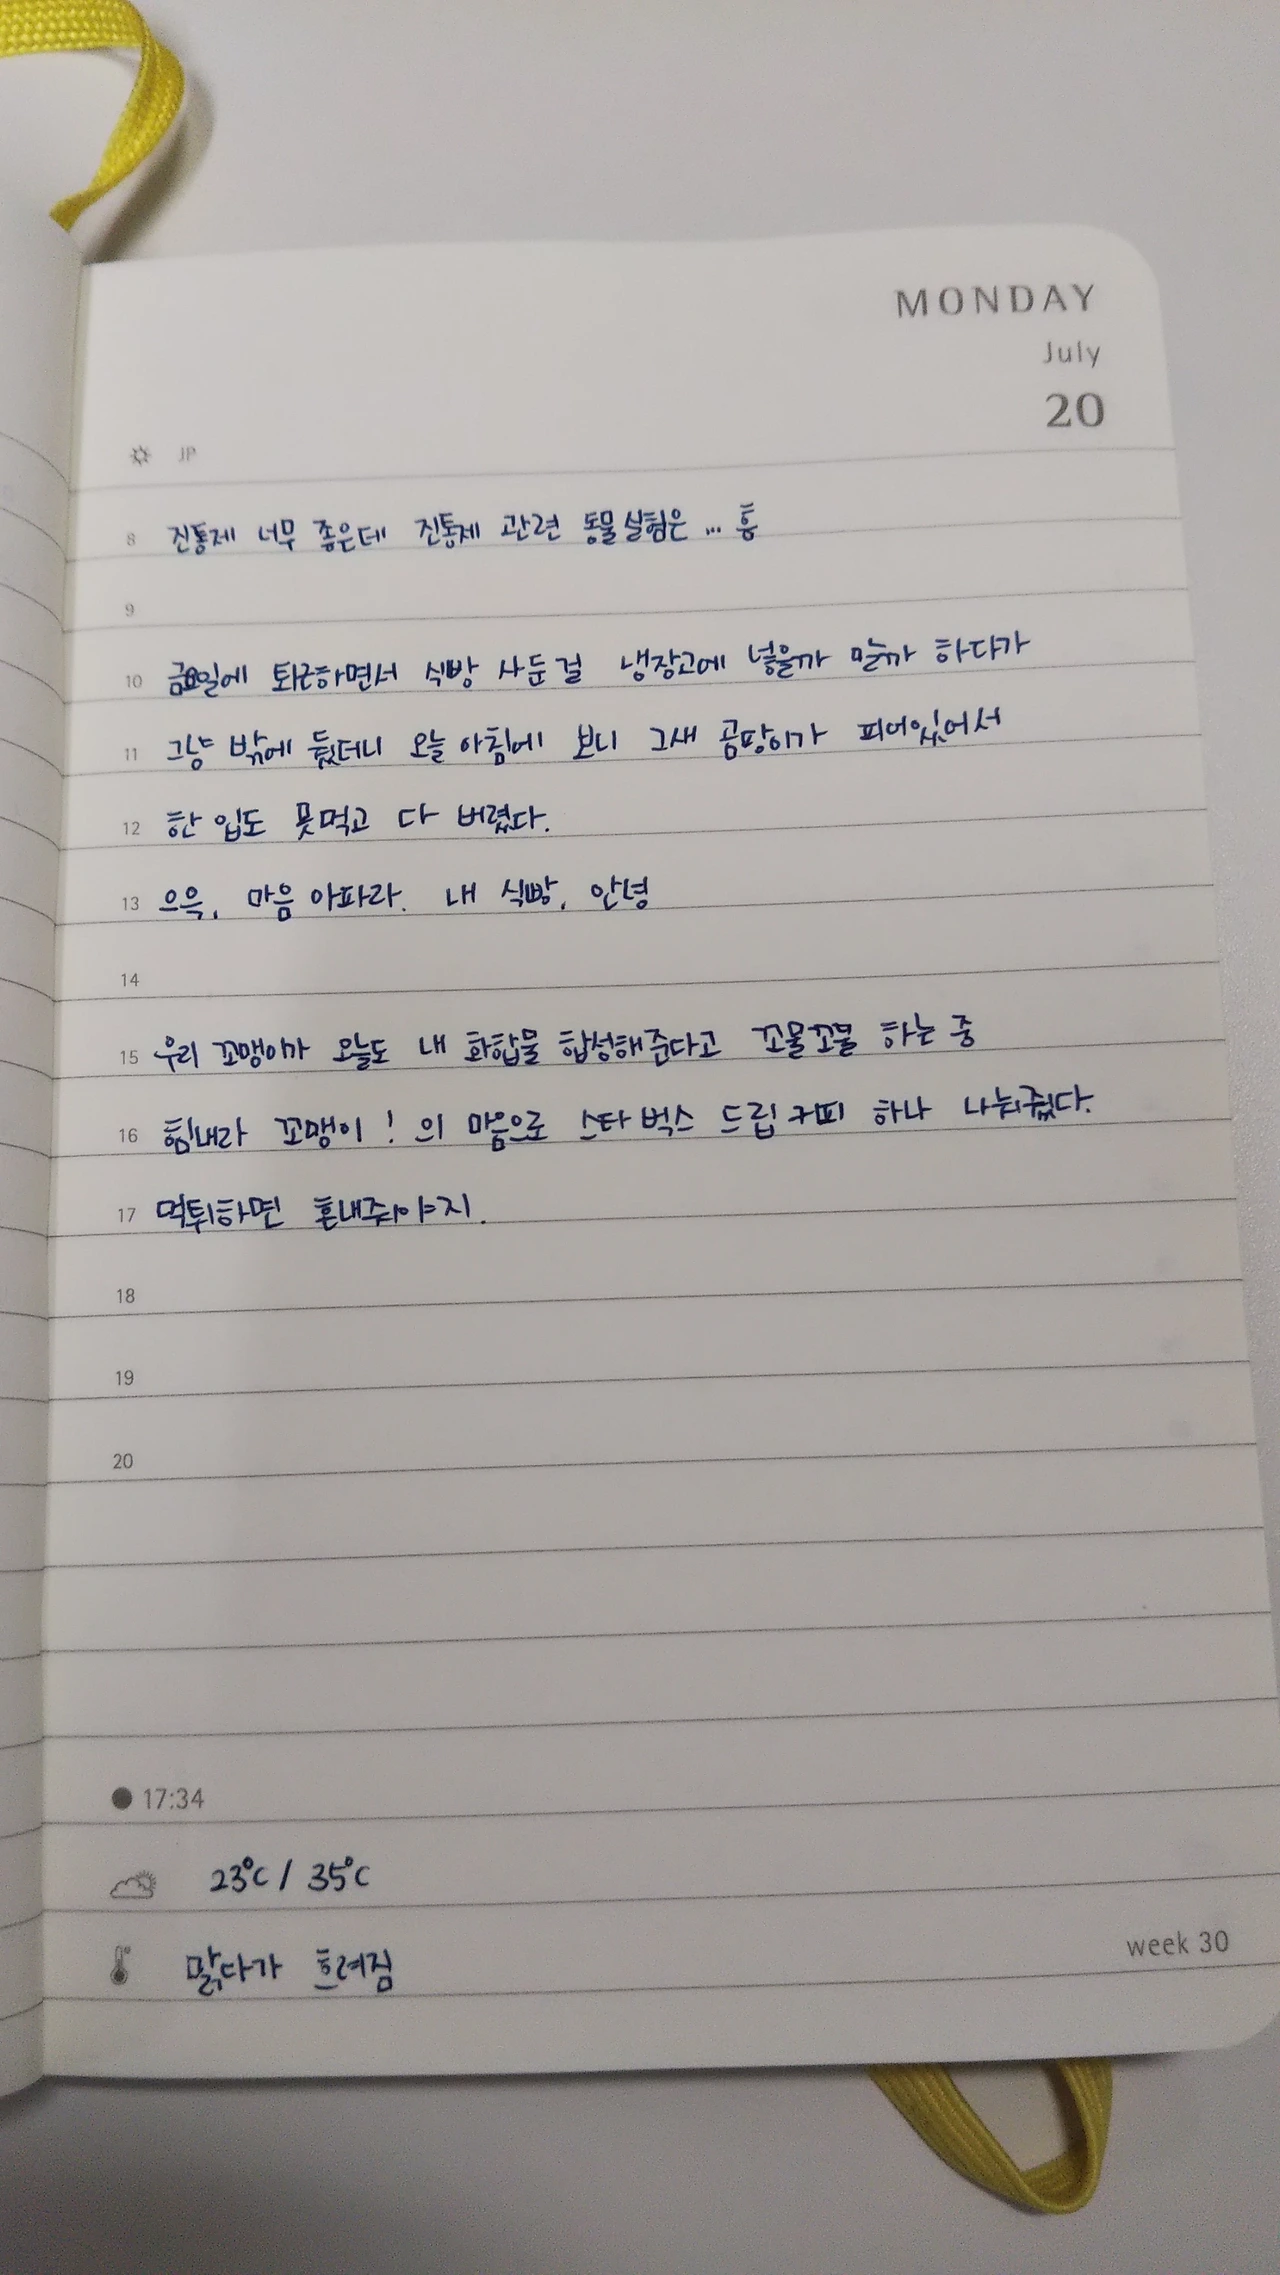 MONDAY
July
20
JP
8 진통제 너무 좋은데 진통제 관련 동물실험은 ... 흠
9
10 금요일에 퇴근하면서 식빵 사둔 걸 냉장고에 넣을까 말까 하다가
11 그냥 밖에 뒀더니 오늘 아침에 보니 그새 곰팡이가 피어있어서
12 한 입도 못먹고 다 버렸다.
13 으윽, 마음 아파라. 내 식빵, 안녕
14
15 우리 꼬맹이가 오늘도 내 화합물 합성해준다고 꼬물꼬물 하는 중
16 힘내라 꼬맹이! 의 마음으로 스타벅스 드립커피 하나 나눠줬다.
17 먹튀하면 혼내줘야지.
18
19
20
17:34
23°C / 35°C
맑다가 흐려짐
week 30